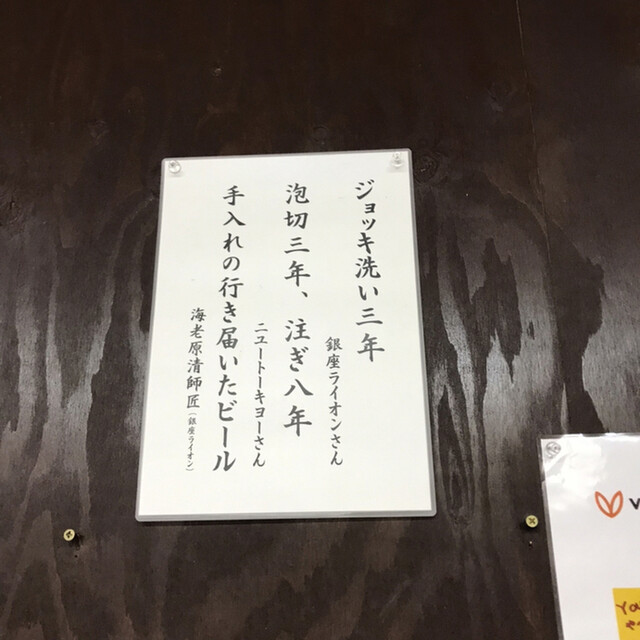 ジョッキ洗い三年
銀座ライオンさん
泡切三年、注ぎ八年
ニユートーキヨーさん
手入れの行き届いたビール
海老原清師匠(銀座ライオン)